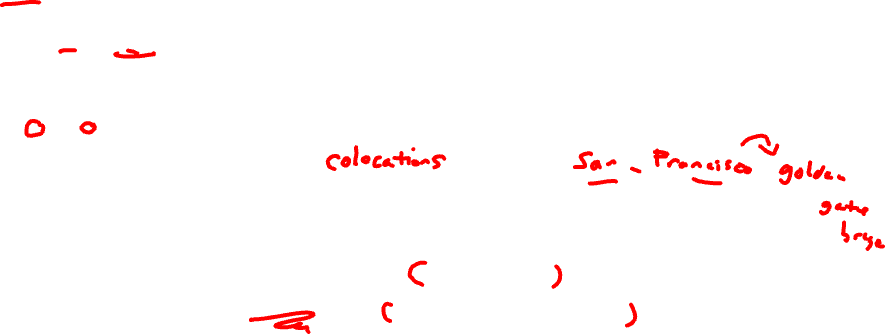 colocations San Francisco golden
gate
brge